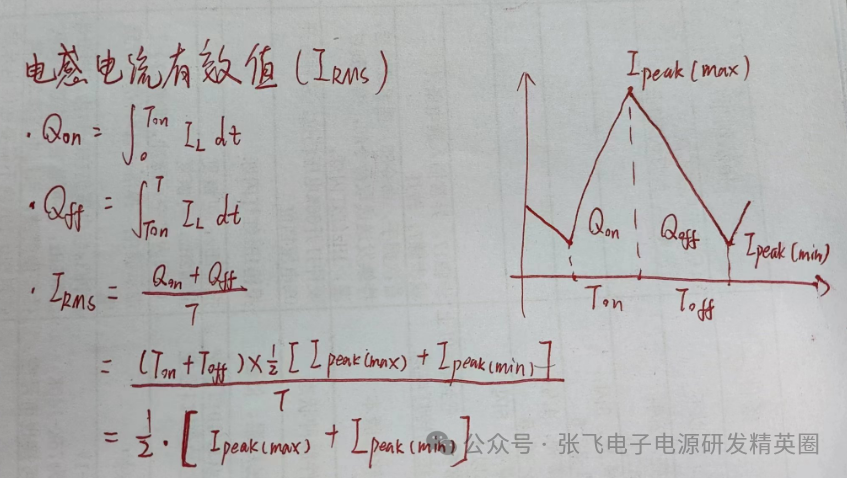 电感电流有效值(I_RMS)
· Q_on = ∫_0^{Ton} I_L dt
· Q_ff = ∫_{Ton}^{T} I_L dt
· I_RMS = \frac{Q_on + Q_ff}{T}
= \frac{(T_on + T_off) × \frac{1}{2} [I_peak(max) + I_peak(min)]}{T}
= \frac{1}{2} · [I_peak(max) + I_peak(min)]
I_peak(max)
Q_on Q_off I_peak(min)
T_on T_off
公众号 · 张飞电子电源研发精英圈